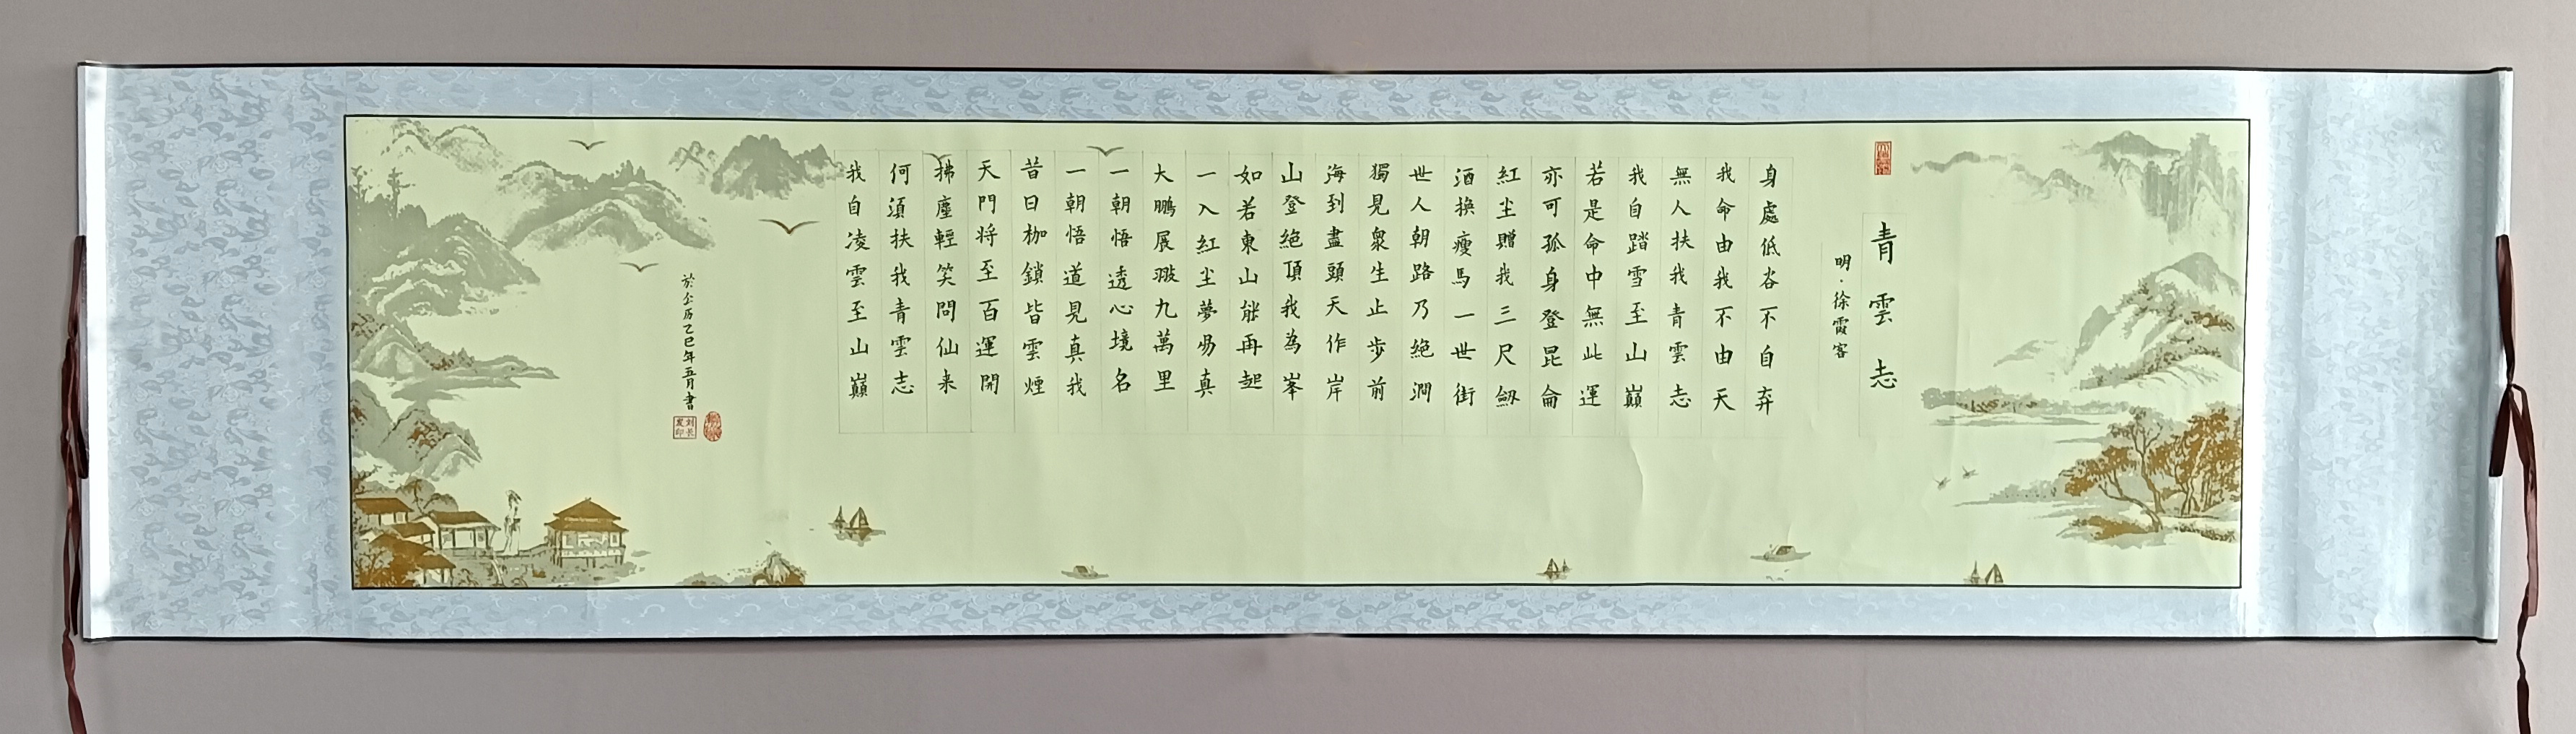 青雲志
明·徐霞客
身處低谷不自弃
我命由我不由天
無人扶我青雲志
我自踏雪至山巔
若是命中無此運
亦可孤身登昆侖
紅尘贈我三尺劍
酒换瘦馬一世街
世人朝路乃絕澗
獨見衆生止步前
海到盡頭天作岸
山登絕頂我為峯
如若東山能再起
一入紅尘夢易真
大鵬展翅九萬里
一朝悟透心境名
一朝悟道見真我
昔日枷鎖皆雲煙
天門將至百運開
拂塵輕笑問仙来
何須扶我青雲志
我自凌雲至山巔
於公历乙巳年五月書